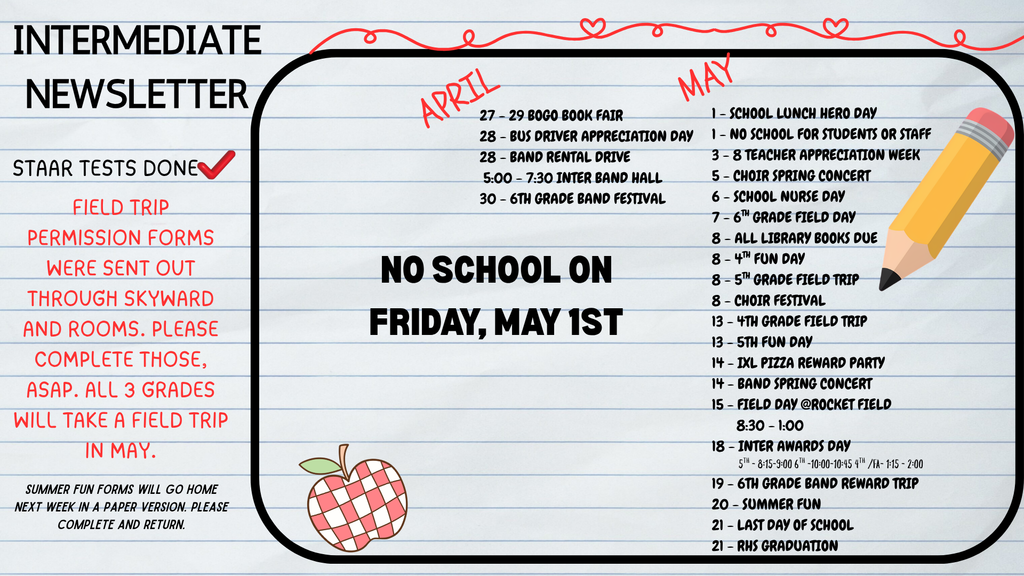 INTERMEDIATE
NEWSLETTER
STAAR TESTS DONE
FIELD TRIP
PERMISSION FORMS
WERE SENT OUT
THROUGH SKYWARD
AND ROOMS. PLEASE
COMPLETE THOSE,
ASAP. ALL 3 GRADES
WILL TAKE A FIELD TRIP
IN MAY.
SUMMER FUN FORMS WILL GO HOME
NEXT WEEK IN A PAPER VERSION. PLEASE
COMPLETE AND RETURN.
APRIL
27 - 29 BOGO BOOK FAIR
28 - BUS DRIVER APPRECIATION DAY
28 - BAND RENTAL DRIVE
5:00 - 7:30 INTER BAND HALL
30 - 6TH GRADE BAND FESTIVAL
NO SCHOOL ON
FRIDAY, MAY 1ST
MAY
1 - SCHOOL LUNCH HERO DAY
1 - NO SCHOOL FOR STUDENTS OR STAFF
3 - 8 TEACHER APPRECIATION WEEK
5 - CHOIR SPRING CONCERT
6 - SCHOOL NURSE DAY
7 - 6TH GRADE FIELD DAY
8 - ALL LIBRARY BOOKS DUE
8 - 4TH FUN DAY
8 - 5TH GRADE FIELD TRIP
8 - CHOIR FESTIVAL
13 - 4TH GRADE FIELD TRIP
13 - 5TH FUN DAY
14 - IXL PIZZA REWARD PARTY
14 - BAND SPRING CONCERT
15 - FIELD DAY @ROCKET FIELD
8:30 - 1:00
18 - INTER AWARDS DAY
5TH - 8:15-9:00 6TH -10:00-10:45 4TH /FA- 1:15 - 2:00
19 - 6TH GRADE BAND REWARD TRIP
20 - SUMMER FUN
21 - LAST DAY OF SCHOOL
21 - RHS GRADUATION